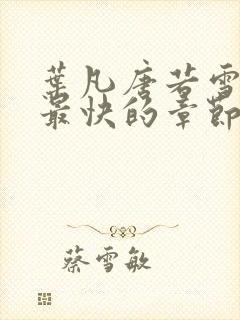 葉凡唐若雪
最快的章節
蔡雪敏